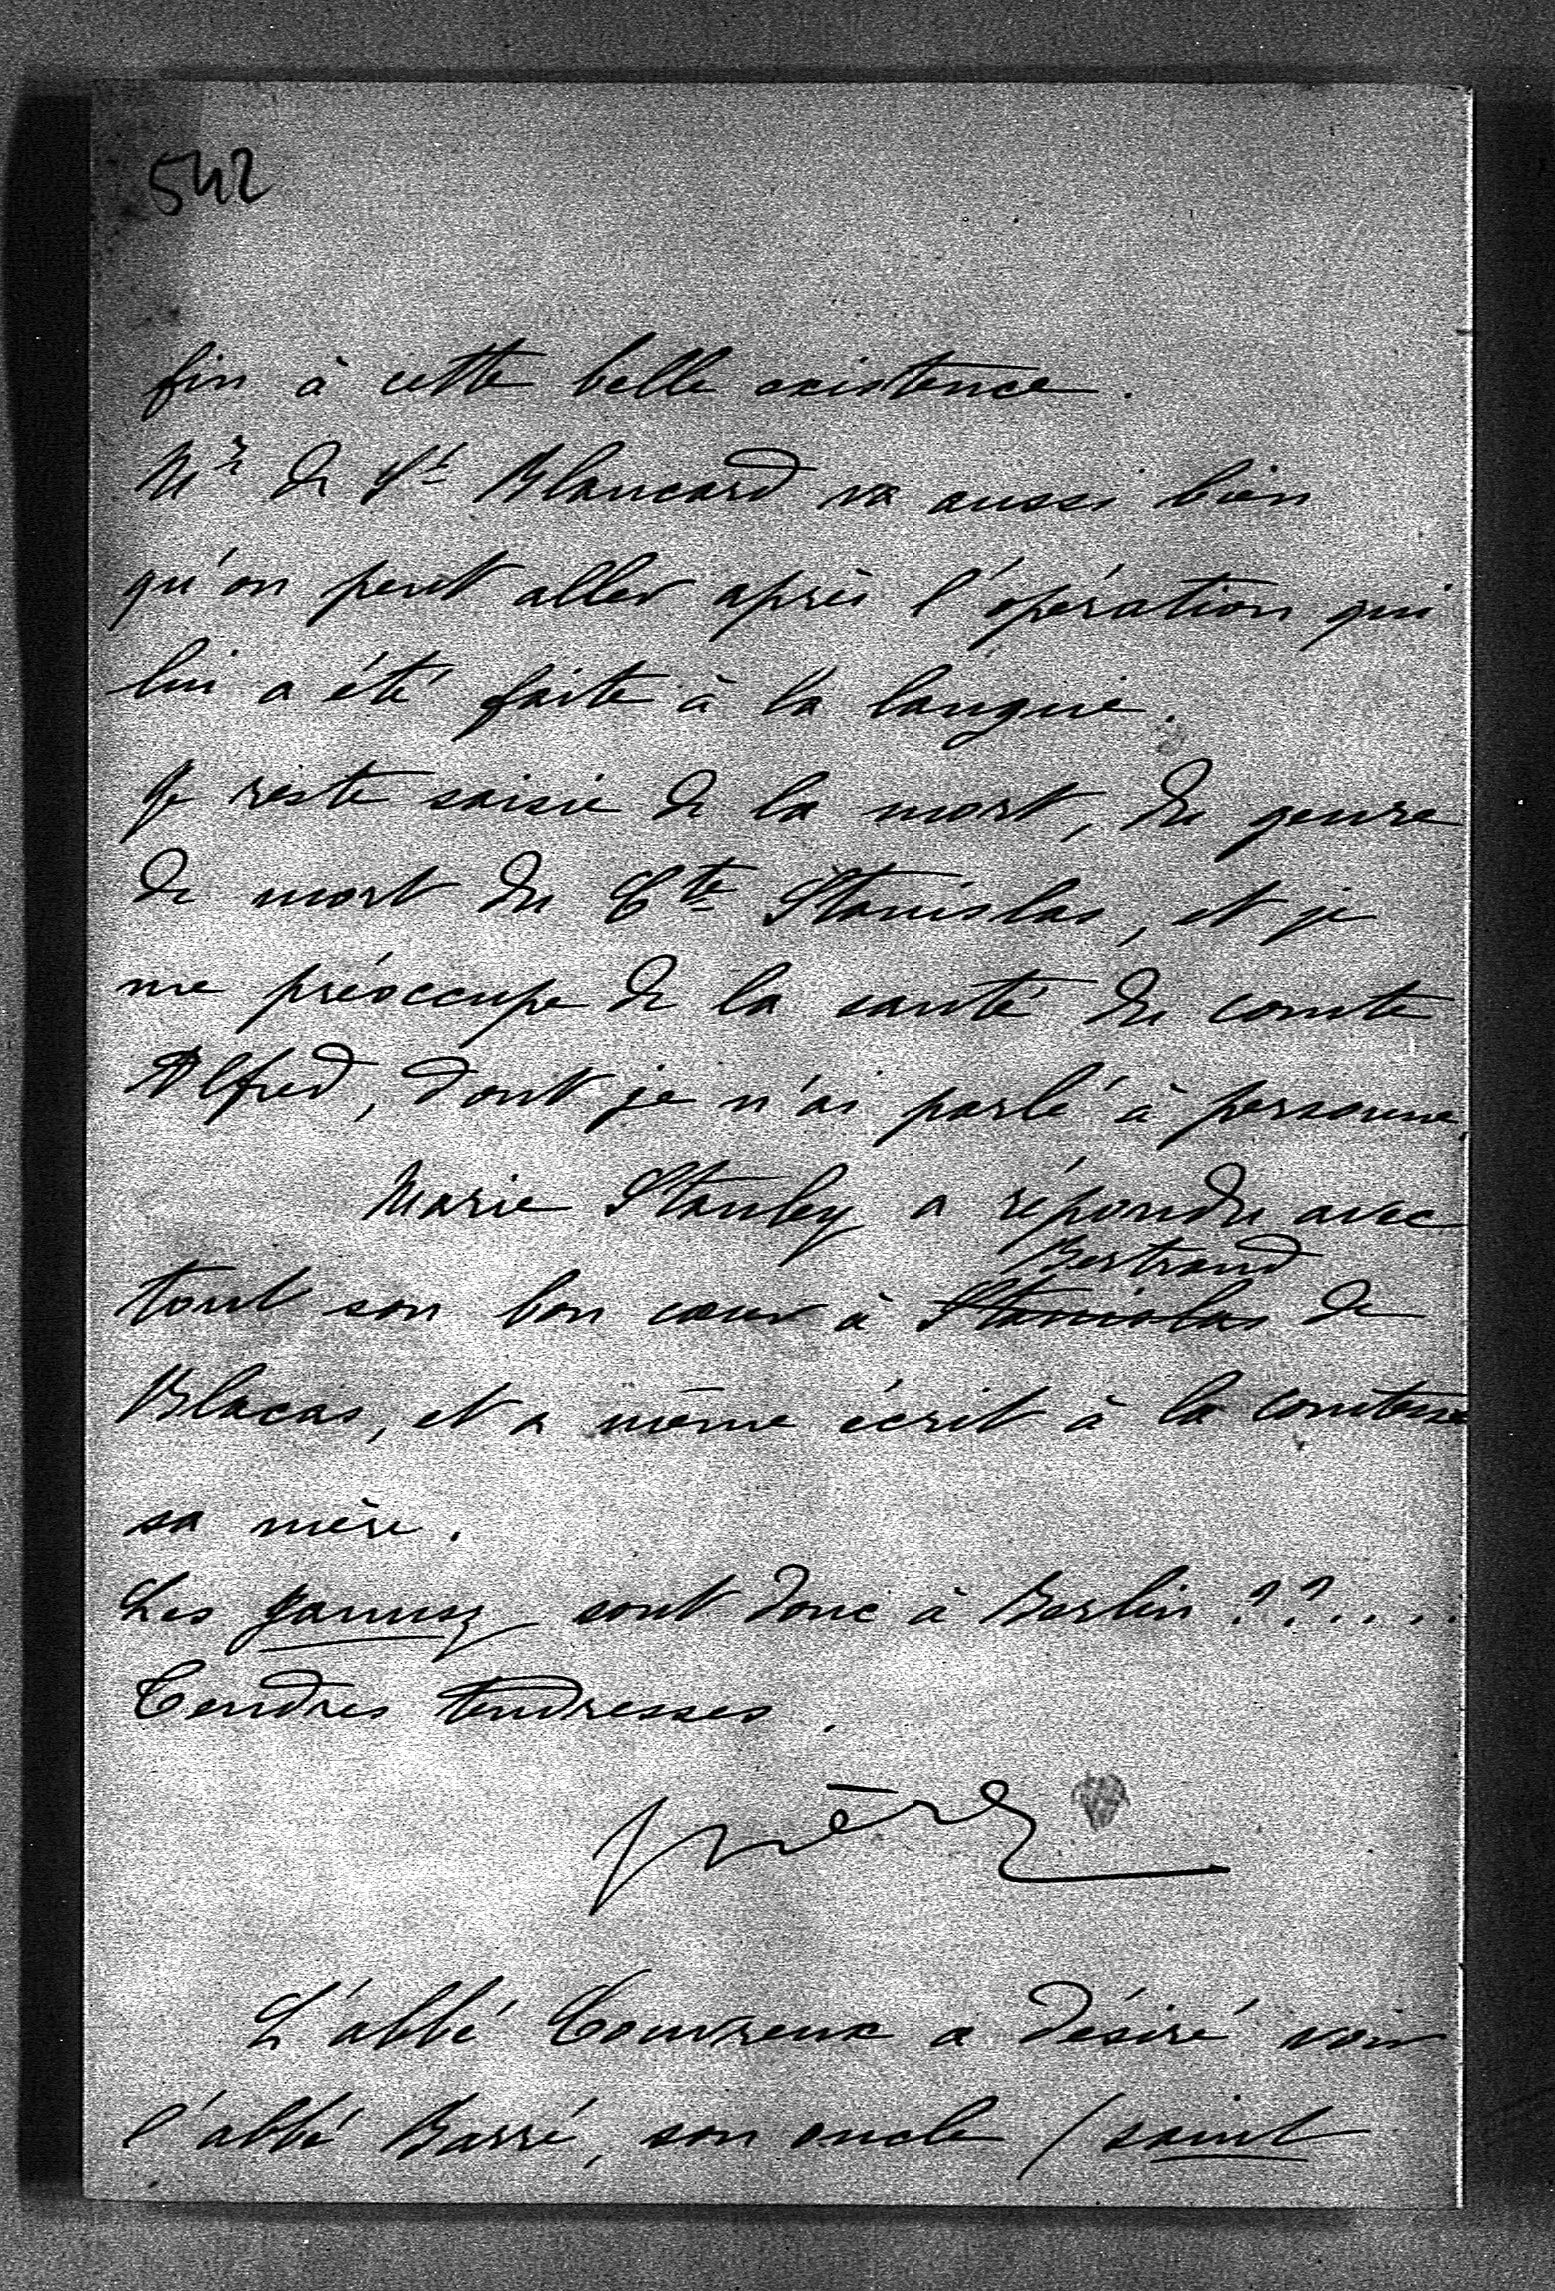 542
fin à cette belle existence.
Mr de St Blancard va aussi bien
qu'on peut aller après l'opération qui
lui a été faite à la langue.
Je reste saisie de la mort, du genre
de mort du Cte Stanislas, et je
me préoccupe de la santé du comte
Alfred, dont je n'ai parlé à personne.
Marie Stanley a répondu avec
Bertrand
tout son bon cœur à Stanislas de
Blacas, et a même écrit à la comtesse
sa mère.
Les Janusz sont donc à Berlin ??....
Tendres tendresses.
L'abbé Couvreux a désiré voir
l'abbé Barré, son oncle (saint